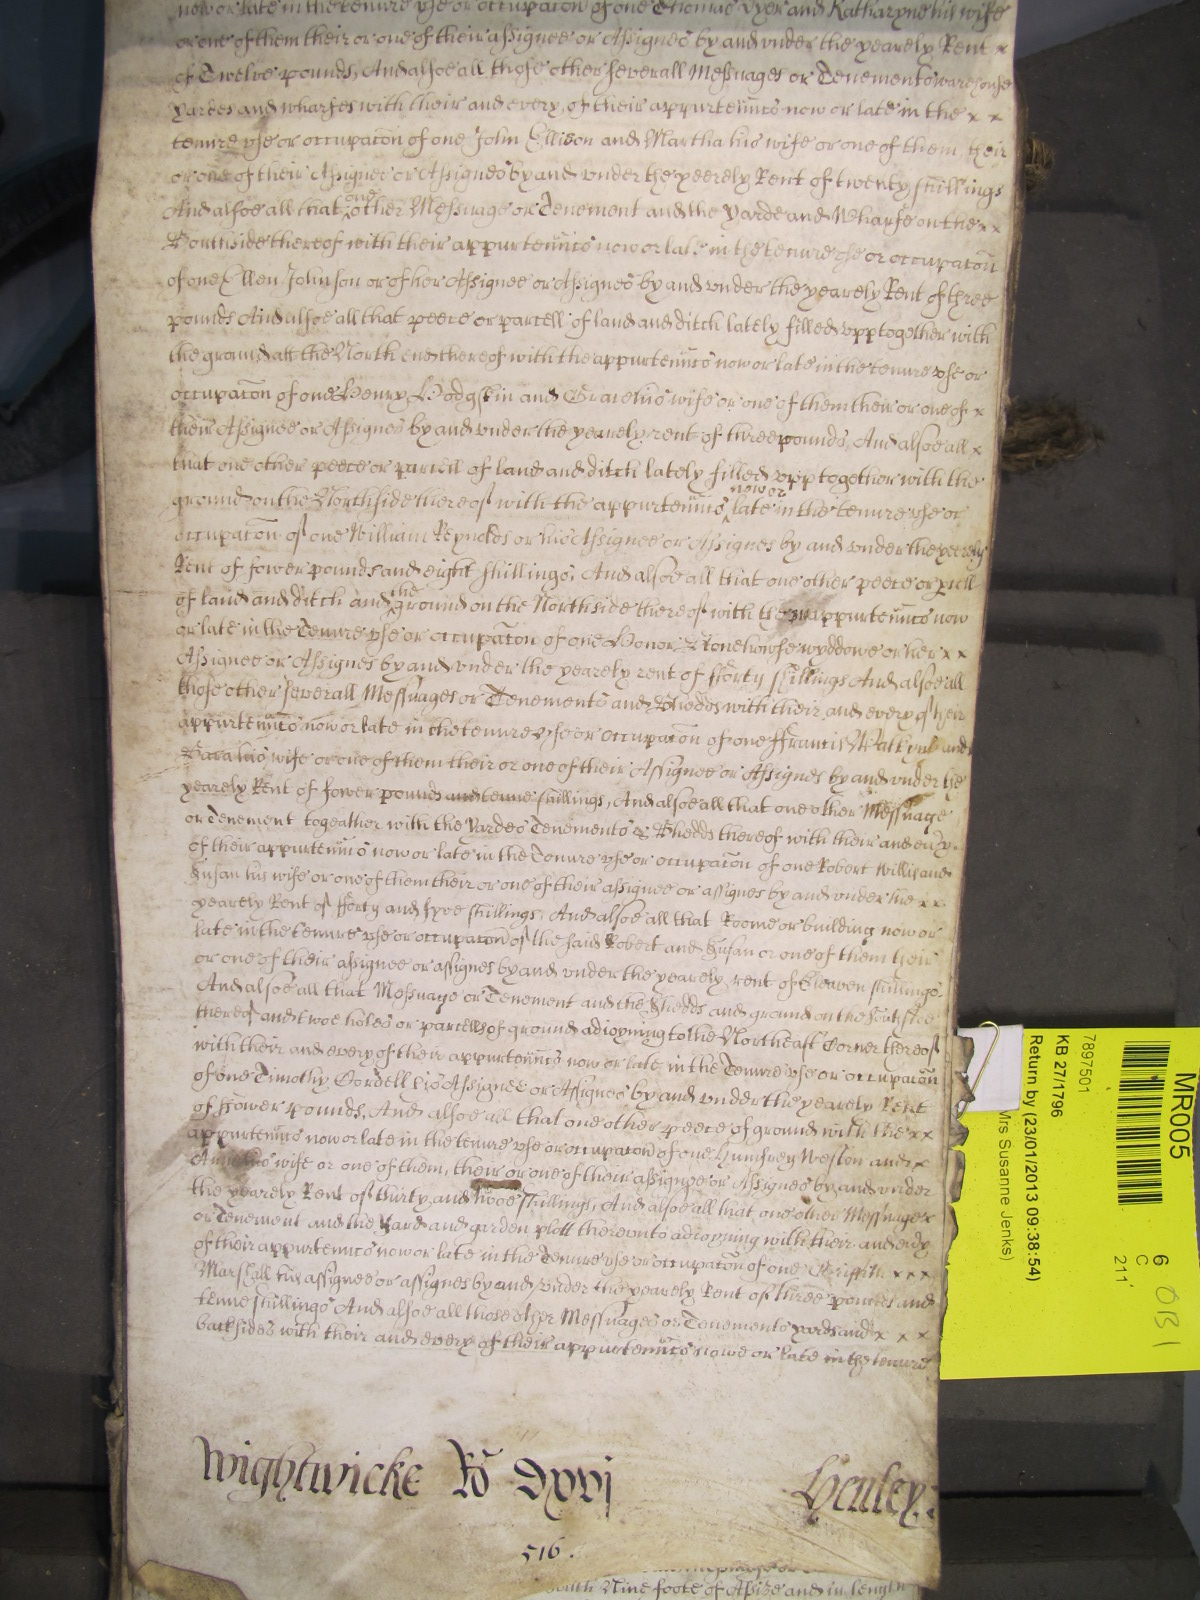 now or late in the tenure vse or occupacōn of one Thomas Dyer and Katharyne his wife
or one of them their or one of their assignee or Assignes by and vnder the yearely Rent x
of Twelve pounds, And alsoe all those other severall Messuages or Tenements warehouse
Yardes and wharfes with their and every of their appurtenn̄cs now or late in the x x
tenure vse or occupacōn of one John Ellison and Martha his wife or one of them their
or one of their Assignee or Assignes by and vnder the yeerely Rent of twenty shillings
And alsoe all that one other Messuage or Tenement and the Yarde and Wharfe on the x x
Northside thereof with their appurtenn̄cs now or late in the tenure vse or occupacōn
of one Ellen Johnson or of her Assignee or Assignes by and vnder the yearely Rent of three
pounds And alsoe all that peece or parcell of land and ditch lately filled vpp together with
the ground att the North end thereof with the appurtenn̄cs now or late in the tenure vse or
occupacōn of one Henry Hodgskin and Grace his wife or one of them their or one of x
their Assignee or Assignes by and vnder the yearely rent of three pounds, And alsoe all x
that one other peece or parcell of land and ditch lately filled vpp together with the
ground on the Northside thereof with the appurtenn̄cs now or late in the tenure vse or
occupacōn of one William Reynolds or his Assignee or Assignes by and vnder the yeerely
Rent of fower pounds and eight shillings, And alsoe all that one other peece or p̱cell
of land and ditch and the ground on the Northside thereof with the appurtenn̄cs now
or late in the Tenure vse or occupacōn of one Honor Stonehowse wyddowe or her x x
Assignee or Assignes by and vnder the yearely rent of fforty shillings And alsoe all
those other severall Messuages or Tenements and Shedds with their and every of their
appurtenn̄cs now or late in the tenure vse or occupacōn of one ffrancis and
Sara his wife or one of them their or one of their Assignee or Assignes by and vnder the
yearely Rent of fower pounds and tenne shillings, And alsoe all that one other Messuage
or Tenement togeather with the Yardes Tenements & Shedds thereof with their and eūy
of their appurtenn̄cs now or late in the Tenure vse or occupacōn of one Robert Willis and
Susan his wife or one of them their or one of their assignee or assignes by and vnder the x x
yearely Rent of fforty and fyve shillings, And alsoe all that Roome or building now or
late in the tenure vse or occupacōn of the said Robert and Susan or one of them their
or one of their assignee or assignes by and vnder the yearely rent of Eleaven shillings.
And alsoe all that Messuage or Tenement and the Shedds and ground on the Southside
thereof and twoe holes or parcells of ground adioyning to the Northeast Corner thereof
with their and every of their appurtenn̄cs now or late in the Tenure vse or occupacōn
of one Timothy Cordell his Assignee or Assignes by and vnder the yearely Rent
of ffower pounds. And alsoe all that one other peece of ground with the x x
appurtenn̄cs now or late in the tenure vse or occupacōn of one Humfrey Weston and x
Anne his wife or one of them, their or one of their assignee or Assignes by and vnder
the yearely Rent of thirty and twoe shillings, And alsoe all that one other Messuage x
or Tenement and the Yard and garden plott therevnto adioyning with their and eūy
of their appurtenn̄cs now or late in the Tenure vse or occupacōn of one Griffith x x x
Marshall his assignee or assignes by and vnder the yearely Rent of three pounds and
tenne shillings And alsoe all those other Messuages or Tenements yards and x x x
backsides with their and every of their appurtenn̄cs nowe or late in the tenure
Wightwicke Rō Dxvj Henley.
516.
South Nine foote of Assize and in length
MR005
7897501
KB 27/1796
Return by (23/01/2013 09:38:54)
Mrs Susanne Jenks)
6
C
211'